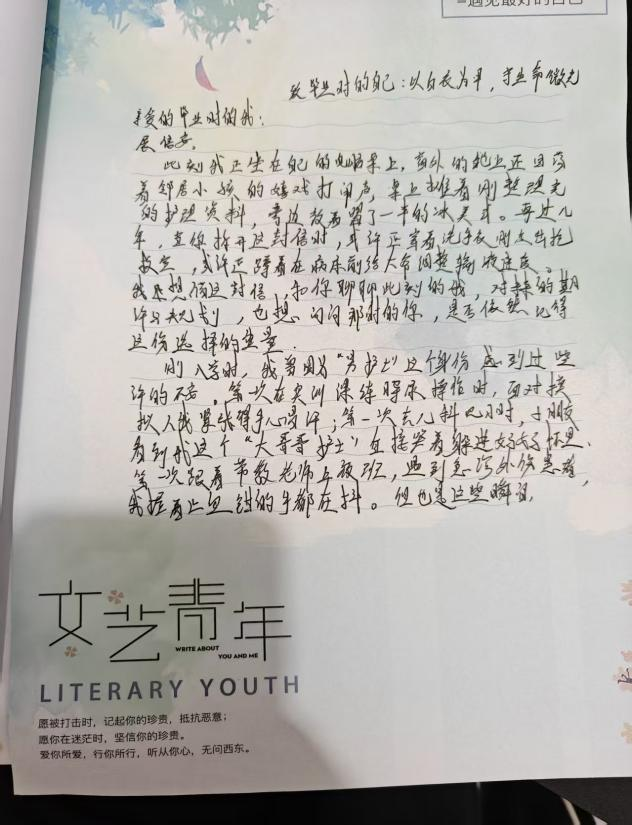 =遇见最好的自己
致毕业时的自己：以白衣为甲，守生命微光
亲爱的毕业时的我：
展信安。
此刻我正坐在自己的电脑桌上，窗外的地上还回荡
着邻居小孩的嬉戏打闹声，桌上堆着刚整理完
的护理资料，旁边放着舀了一半的冰。再过几
年，当你拆开这封信时，或许正穿着洗手衣刚走出抢
救室，或许正蹲在病床前给大爷调整输液速度。
我想借这封信，和你聊聊此刻的我，对未来的期
许与规划，也想问问那时的你，是否依然记得
这份选择的
刚入学时，我曾因为“男护士”这个身份感到过些
许的不安。第一次在实训课练习操作时，面对模
拟人我紧张得手心冒汗；第一次去儿科见习时，小朋友
看到我这个“大哥哥护士”直接哭着躲进妈妈怀里、
第一次跟着带教老师上夜班，遇到急诊外伤患者，
我握着止血钳的手都在抖。但也是这些瞬间，
文艺青年
WRITE ABOUT
YOU AND ME
LITERARY YOUTH
愿被打击时，记起你的珍贵，抵抗恶意；
愿你在迷茫时，坚信你的珍贵。
爱你所爱，行你所行，听从你心，无问西东。